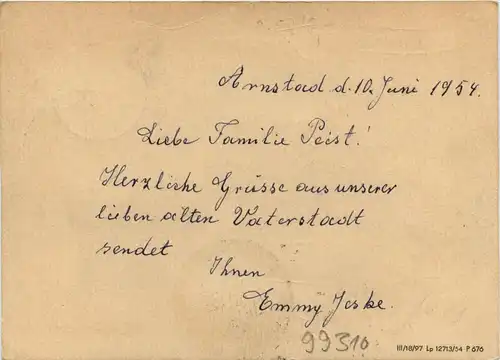 Arnstad d. 10. Juni 1954.
Liebe Familie Peist!
Herzliche Grüsse aus unserer
lieben alten Vaterstadt
sendet
Ihnen
Emmy Jeske.
99310
III/18/97 Lp 12713/54 P 676